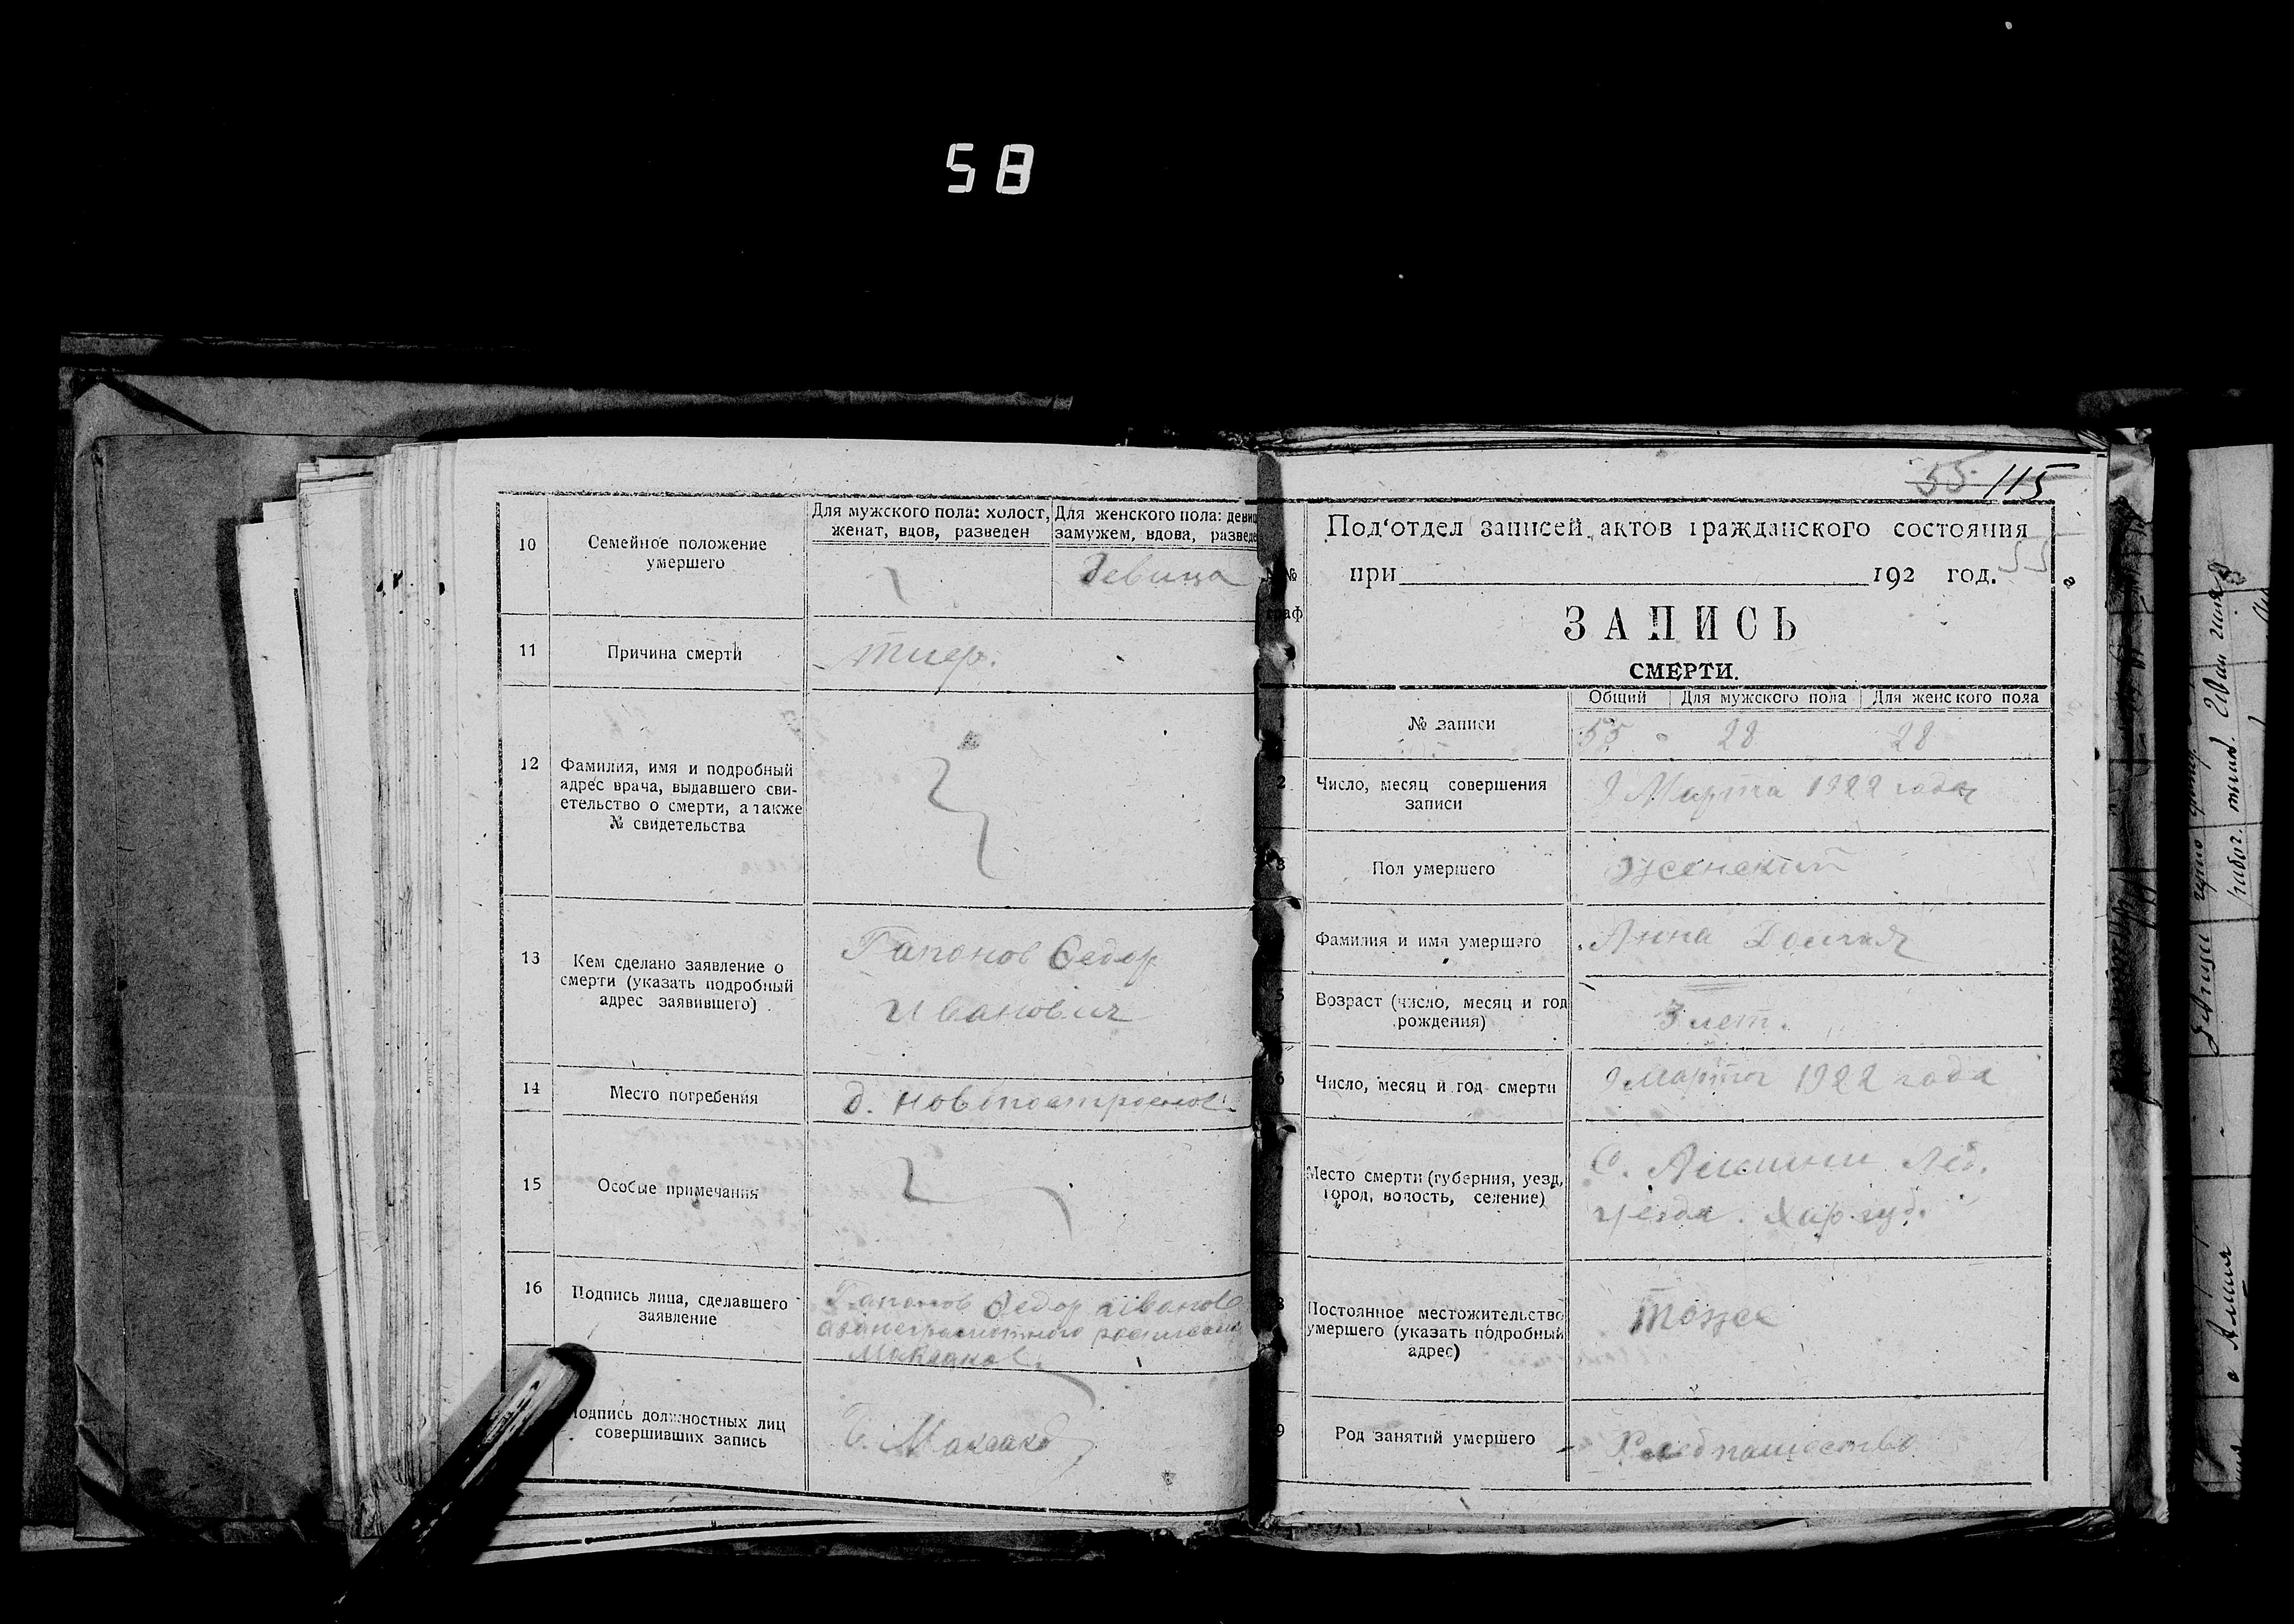 58
10
Семейное положение
умершего
Для мужского пола: холост,
женат, вдов, разведен
Для женского пола: девиц
замужем, вдова, разведе
девица
11
Причина смерти
тиф.
12
Фамилия, имя и подробный
адрес врача, выдавшего сви-
етельство о смерти, а также
№ свидетельства
13
Кем сделано заявление о
смерти (указать подробный
адрес заявившего)
Гапонов Федор
Иванович
14
Место погребения
15
Особые примечания
16
Подпись лица, сделавшего
заявление
Гапонов Федор Иванов
Подпись должностных лиц
совершивших запись
55 115
Под'отдел записей актов гражданского состояния
55
№
при 192 год.
граф
ЗАПИСЬ
СМЕРТИ.
№ записи
Общий
Для мужского пола
Для женского пола
55 28 28
2
Число, месяц совершения
записи
9 Марта 1922 года
3
Пол умершего
женский
Фамилия и имя умершего
Анна
5
Возраст (число, месяц и год
рождения)
3 лет.
6
Число, месяц и год смерти
9 марта 1922 года
7
Место смерти (губерния, уезд,
город, волость, селение)
С. Леб.
уезда. Хар. губ.
8
Постоянное местожительство
умершего (указать подробный
адрес)
тоже
9
Род занятий умершего
Хлебпашество